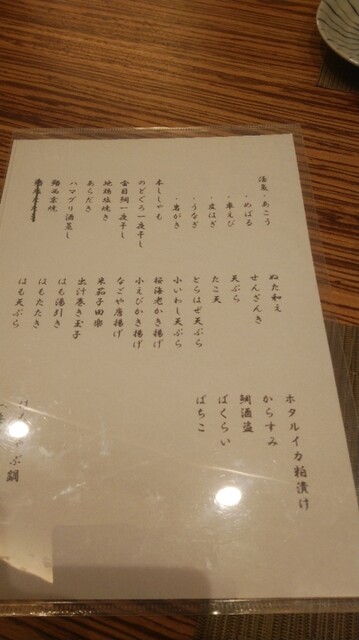 活魚・あこう
・めばる
・車えび
・皮はぎ
・うなぎ
・岩がき
本ししゃも
のどぐろ一夜干し
金目鯛一夜干し
地穴子塩焼き
あらだき
ハマグリ酒蒸し
ぬた和え
せんざんき
天ぷら
たこ天
とらはぜ天ぷら
小いわし天ぷら
桜海老かき揚げ
小えびかき揚げ
なごや唐揚げ
米茄子田楽
出汁巻き玉子
はも湯引き
はもたたき
はも天ぷら
ホタルイカ粕漬け
からすみ
鯛酒盗
ばくらい
ばちこ